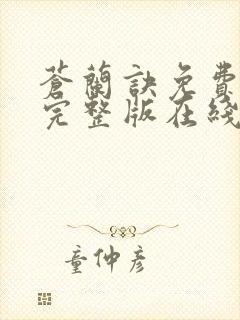 蒼蘭訣免費
完整版在綫
童仲彦